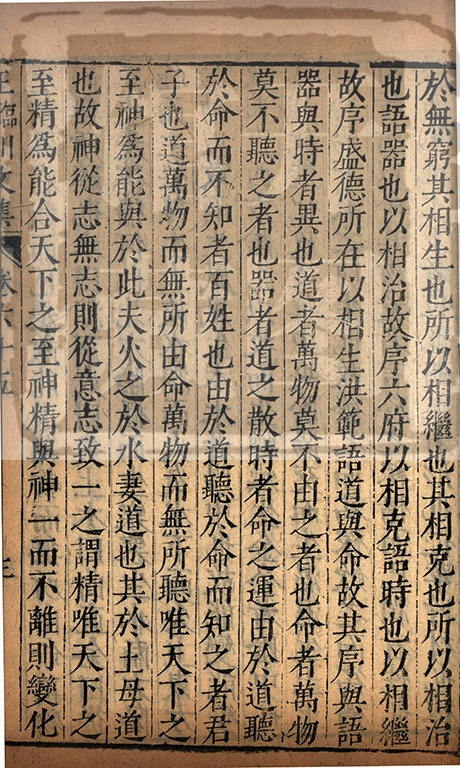 於無窮其相生也所以相繼也其相克也所以相治
也語器也以相治故序六府以相克語時也以相繼
故序盛德所在以相生洪範語道與命故其序與語
器與時者異也道者萬物莫不由之者也命者萬物
莫不聽之者也器者道之散時者命之運由於道聽
於命而不知者百姓也由於道聽於命而知之者君
子也道萬物而無所由命萬物而無所聽唯天下之
至神為能與於此夫火之於水妻道也其於土母道
也故神從志無志則從意志致一之謂精唯天下之
至精為能合天下之至神精與神一而不離則變化
王臨川文集 卷六十五 三